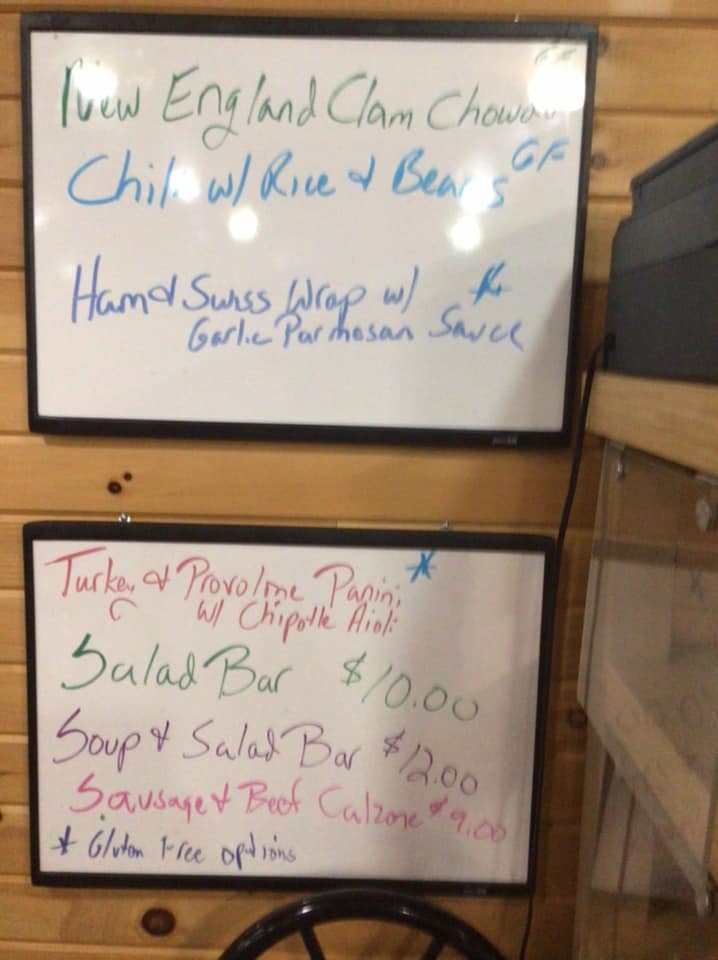 New England Clam Chowder GF
Chili w/ Rice & Beans GF
Ham & Swiss Wrap w/ *
Garlic Parmesan Sauce
Turkey & Provolone Panini *
w/ Chipotle Aioli
Salad Bar $10.00
Soup & Salad Bar $12.00
Sausage & Beef Calzone $9.00
* Gluten Free options